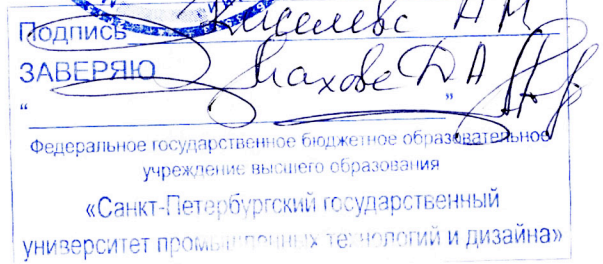 Подпись Киселева АМ
ЗАВЕРЯЮ Махова ДА
“ ”
Федеральное государственное бюджетное образовательное
учреждение высшего образования
«Санкт-Петербургский государственный
университет промышленных технологий и дизайна»